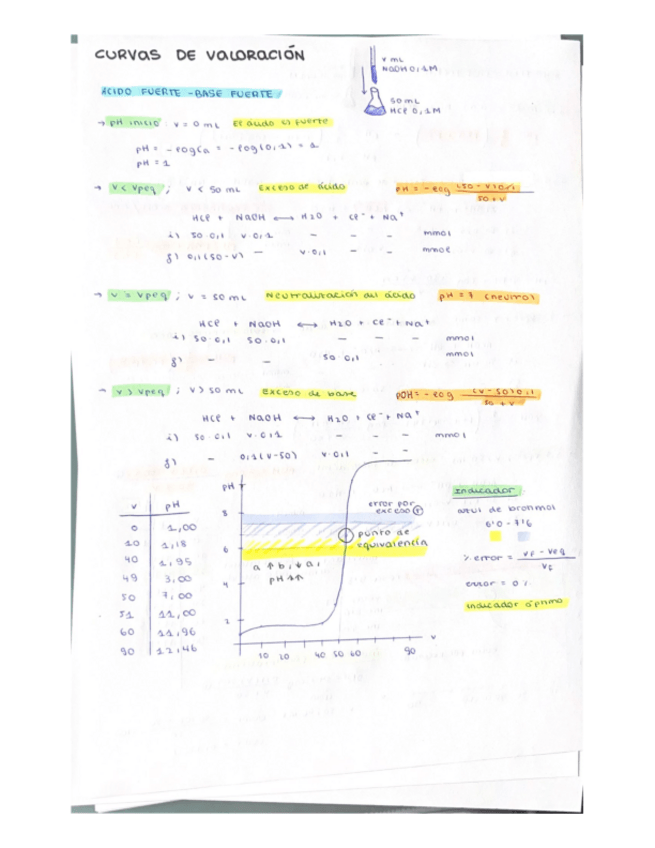 CURVAS DE VALORACIÓN
V mL
NaOH 0,1M
50 mL
HCl 0,1M
ÁCIDO FUERTE - BASE FUERTE
→ pH inicio: V = 0 mL El ácido es fuerte
pH = -log Ca = -log(0,1) = 1
pH = 1
→ V < Vpeq ; V < 50 mL Exceso de ácido pH = -log (50 - V)0,1 / 50 + V
HCl + NaOH ⟷ H2O + Cl⁻ + Na⁺
i) 50·0,1 V·0,1 - - - mmol
f) 0,1(50-V) - V·0,1 - - mmol
→ V = Vpeq ; V = 50 mL Neutralización del ácido pH = 7 (neutro)
HCl + NaOH ⟷ H2O + Cl⁻ + Na⁺
i) 50·0,1 50·0,1 - - - mmol
f) - - 50·0,1 mmol
→ V > Vpeq ; V > 50 mL Exceso de base pOH = -log (V - 50)0,1 / 50 + V
HCl + NaOH ⟷ H2O + Cl⁻ + Na⁺
i) 50·0,1 V·0,1 - - - mmol
f) - 0,1(V-50) V·0,1 - -
V pH
0 1,00
10 1,18
40 1,95
49 3,00
50 7,00
51 11,00
60 11,96
90 12,46
pH
8
6
4
2
10 20 40 50 60 90
V
error por
exceso ⊕
punto de
equivalencia
a ↑ b, ↓ a
pH ↑↑
Indicador
azul de bromimol
6'0 - 7'6
% error = Vf - Veq / Vf
error = 0%
indicador óptimo